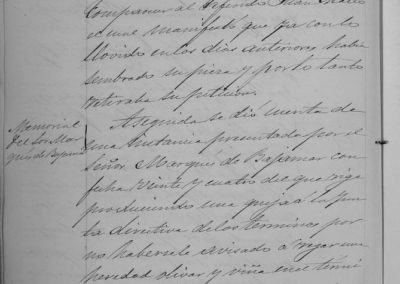 Compacuer al referido Juan
el cual manifestó que ya con lo
llovido en los dias anteriores habia
sembrado su pieza y por lo tanto
retiraba su peticion.
Memorial
del Sor. Mar
qués de Bajamar
Aseguida se dió cuenta de
una instancia presentada por el
Señor Marqués de Bajamar con
fecha veinte y cuatro del que rige
produciendo una queja á la Jun
ta directiva de los terminos por
no haberle avisado á regar una
heredad olivar y viña en el térmi